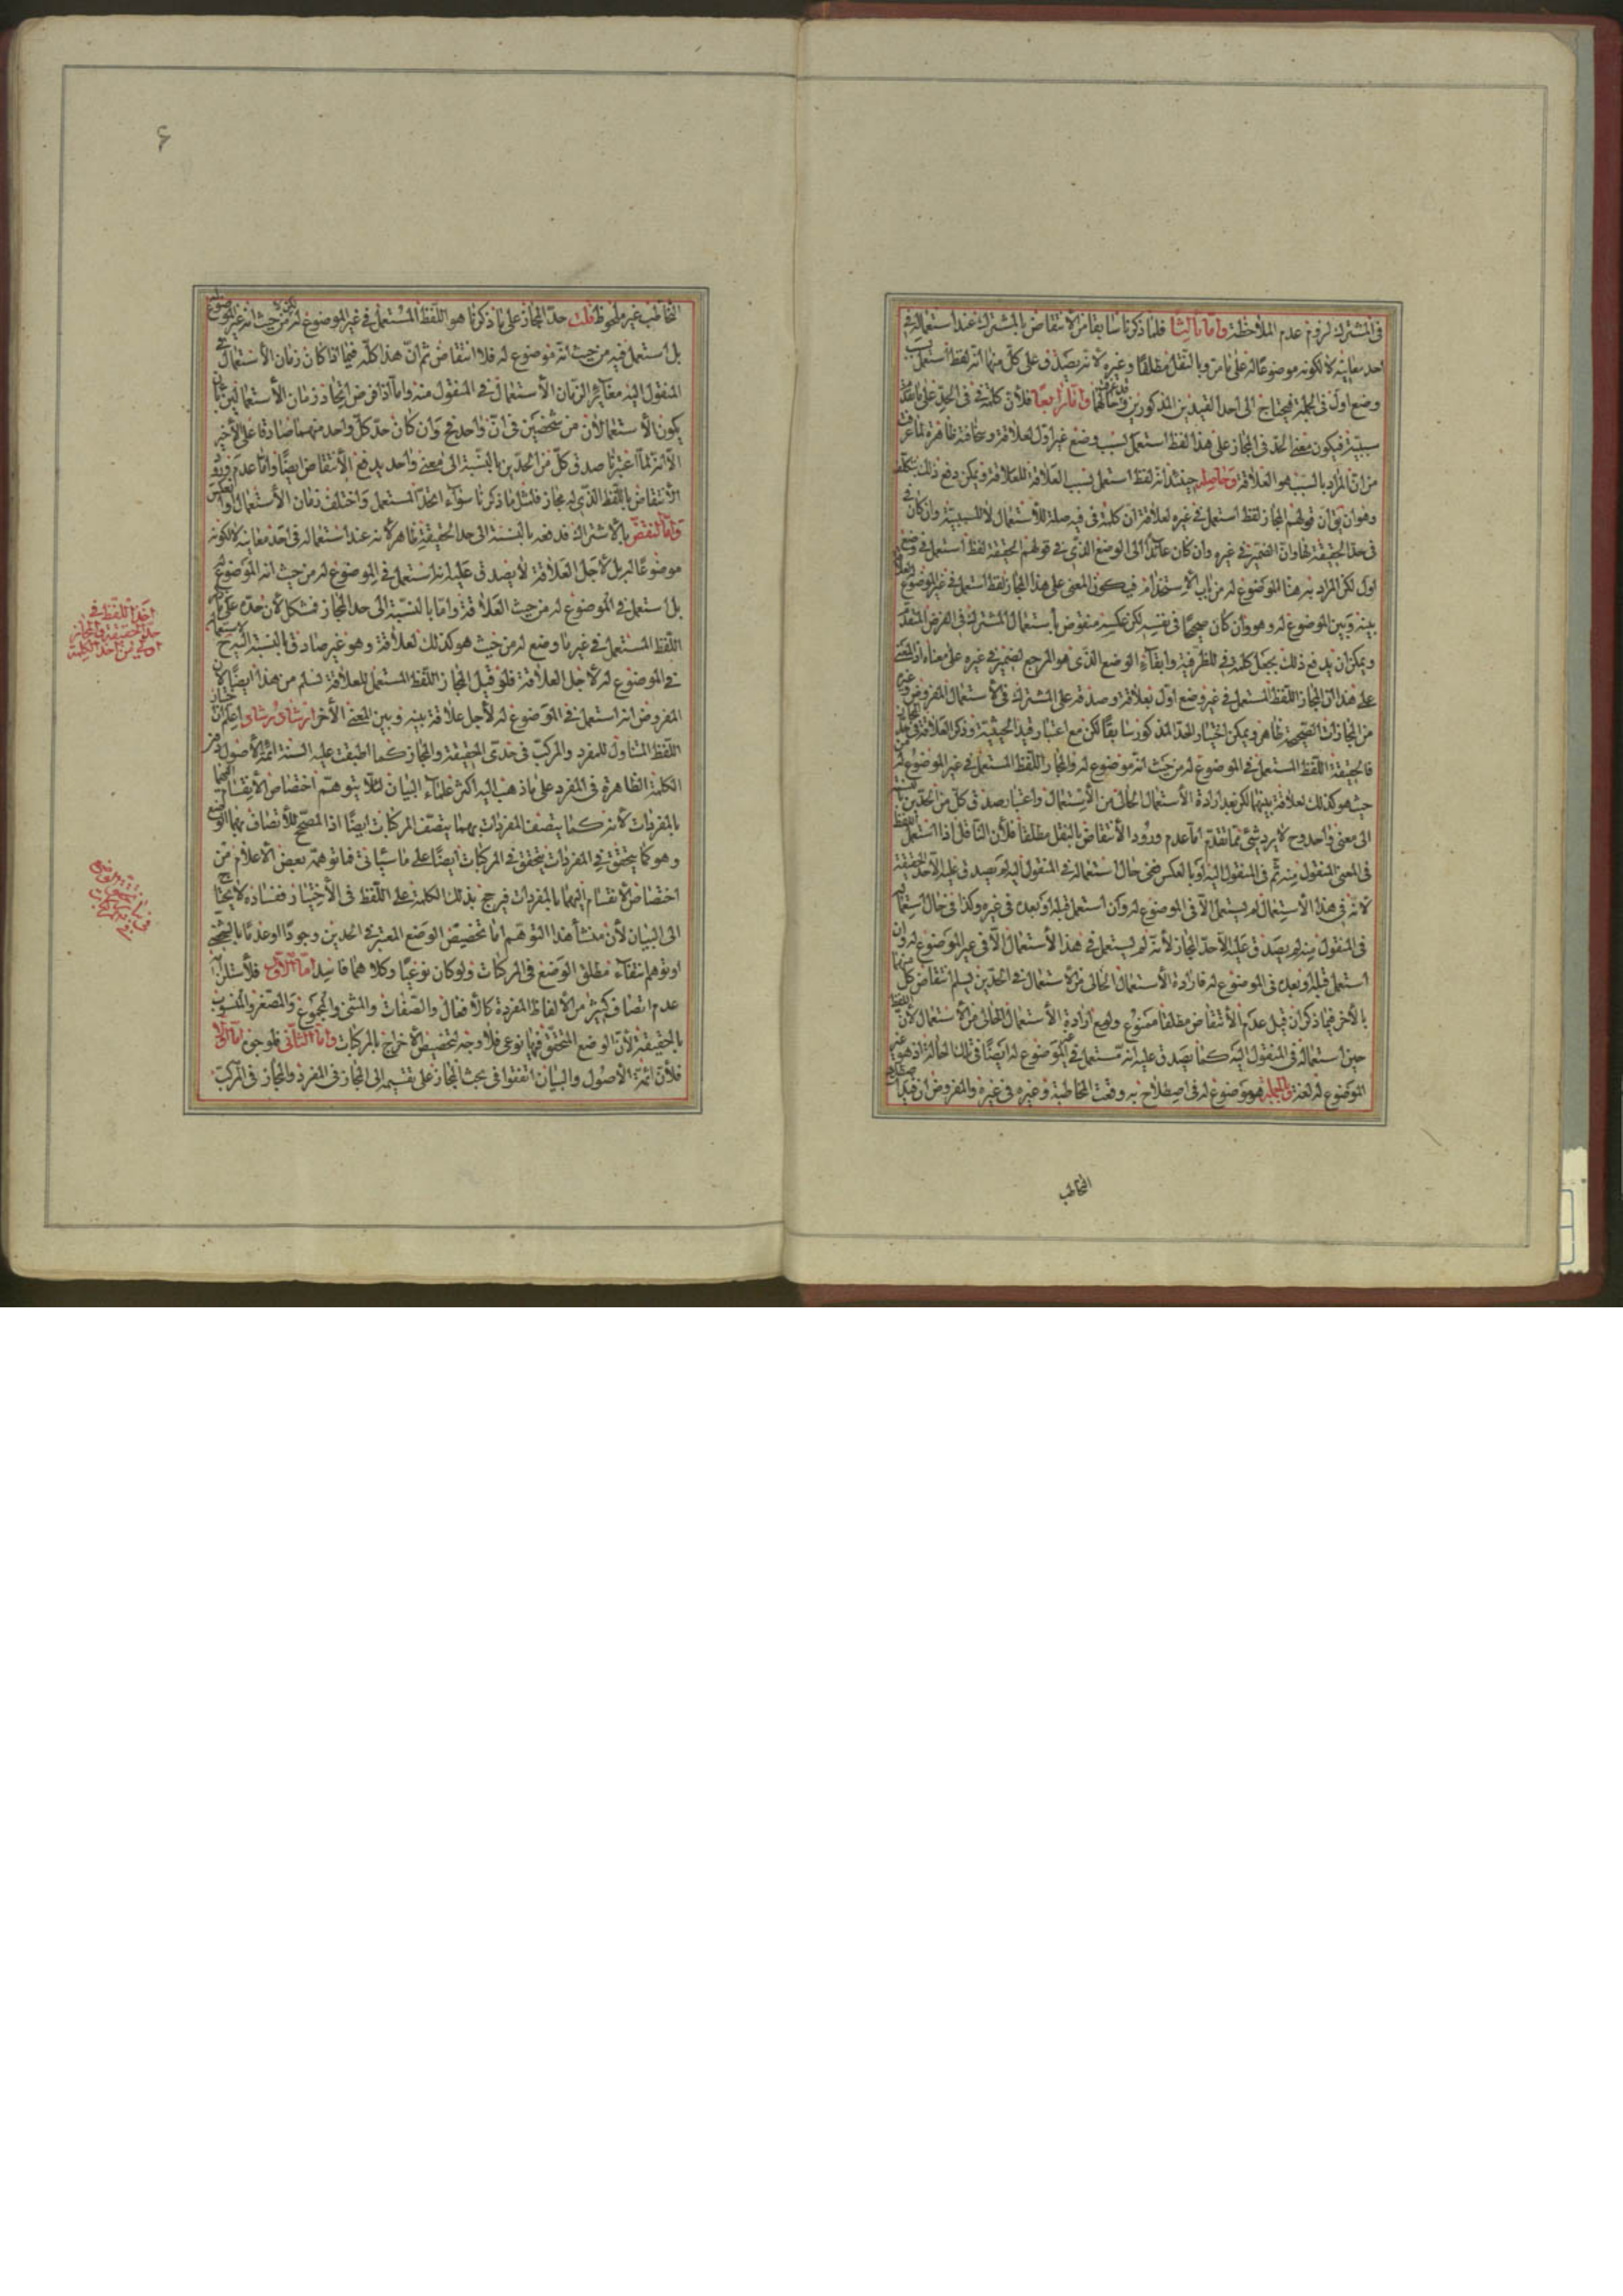 في المشترك لزوم عدم الملاحظة وامّا ثالثا فلما ذكرنا سابقا من الانتقاض بالمشترك عند استعماله في
احد معانيه لا لكونه موضوعا له على ما مر وبالنقل مطلقا وغيره لانه يصدق على كل منهما انه لفظ استعمل
وضع اول في الجملة فيحتاج الى احد القيدين المذكورين وامّا رابعا فلأن كلمة في في الحدّ على
سببيّة فيكون معنى الحد في المجاز على هذا لفظ استعمل بسبب وضع غير اوّل لعلاقة وسخافته ظاهرة لما عرفت
من ان المراد بالسبب هو العلاقة وحاصله حينئذ انه لفظ استعمل بسبب العلاقة للعلاقة ويمكن دفع ذلك بتكلّف
وهو ان يق ان قولهم المجاز لفظ استعمل في غيره لعلاقة ان كلمة في فيه صلة للاستعمال لا للسببية وان كان
في حد الحقيقة لها وان الضمير في غيره وان كان عائدا الى الوضع الذي في قولهم الحقيقة لفظ استعمل في وضع
اول لكن المراد به هنا الموضوع له من باب الاستخدام فيكون المعنى على هذا المجاز لفظ استعمل في غير الموضوع
بينه وبين الموضوع له وهو وان كان صحيحا في نفسه لكن عكسه منقوض باستعمال المشترك في الفرض المتقدّم
ويمكن ان يدفع ذلك بجعل كلمة في للظرفية وابقاء الوضع الذي هو المرجع لضمير في غيره على معناه اذ المعنى
على هذا ان المجاز اللفظ المستعمل في غير وضع اول بعلاقة وصدقه على المشترك في الاستعمال المفروض
من المجازات الصحيحة ظاهر ويمكن اختيار الحد المذكور سابقا لكن مع اعتبار قيد الحيثية وذكر العلاقة في حد
فالحقيقة اللفظ المستعمل في الموضوع له من حيث انه موضوع له والمجاز اللفظ المستعمل في غير الموضوع له
حيث هو كذلك لعلاقة بينهما لكن بعد ارادة الاستعمال الحالي من الاستعمال واعتبار صدق كل من الحدّين
الى معنى واحد وح لا يرد شئ مما تقدّم امّا عدم ورود الانتقاض بالنقل مطلقا فلأن الناقل اذا استعمل
في المعنى المنقول منه ثم في المنقول اليه او بالعكس ففي حال استعماله في المنقول اليه لم يصدق عليه الّا حدّ الحقيقة
لانّه في هذا الاستعمال لم يستعمل الّا في الموضوع له وان استعمل قبله او بعده في غيره وكذا في حال استعماله
في المنقول منه لم يصدق عليه الّا حدّ المجاز لأنّه لم يستعمل في هذا الأستعمال الّا في غير الموضوع له وان
استعمل قبله او بعده في الموضوع له فارادة الأستعمال الحالي من الاستعمال في الحدّين يسلم انتقاض كل منهما
بالأخر فما ذكر ان قيل عدم الأنتقاض مطلقا ممنوع ولو مع ارادة الأستعمال الحالي من الاستعمال لأن
حين استعماله في المنقول اليه كما يصدق عليه انه مستعمل في الموضوع له ايضا في تلك الحالة اذ هو غير
الموضوع له لغة وبالجملة هو موضوع له في اصطلاح به وقعت المخاطبة وغيره في غيره والمفروض ان قيد
التخاطب
۶
التخاطب غير ملحوظ قلت حدّ المجاز على ما ذكرنا هو اللفظ المستعمل في غير الموضوع له من حيث انه غير الموضوع له
بل استعمل فيه من حيث انه موضوع له فلا انتقاض ثم انّ هذا كلّه فيما اذا كان زمان الأستعمال في
المنقول اليه مغاير الزمان الأستعمال في المنقول منه وامّا اذا فرض اتحاد زمان الأستعمالين بان
يكون الأستعمالان من شخصين في ان واحد فح وان كان حدّ كل واحد منهما صادقا على الأخر
الّا انه لمّا اعتبرنا صدق كلّ من الحدّين بالنسبة الى معنى واحد يدفع الأنتقاض ايضا وامّا عدم ورود
الأنتقاض باللفظ الذي له مجاز فلمثل ما ذكرنا سواء اتحد المستعمل واختلف زمان الأستعمال او بالعكس
وامّا النقض بالاشتراك فدفعه بالنسبة الى حد الحقيقة ظاهر لأنه عند استعماله في احد معانيه لا لكونه
موضوعا له بل لأجل العلاقة لا يصدق عليه انه استعمل في الموضوع له من حيث انه الموضوع له
بل استعمل في الموضوع له من حيث العلاقة وامّا بالنسبة الى حد المجاز فمشكل لأن حدّه على ما مر
اللفظ المستعمل في غير ما وضع له من حيث هو كذلك لعلاقة وهو غير صادق بالنسبة اليه ح
في الموضوع له لأجل العلاقة فلو قيل المجاز اللفظ المستعمل للعلاقة لسلم من هذا ايضا لأن
المفروض انه استعمل في الموضوع له لأجل علاقة بينه وبين المعنى الأخر ارشاد ورشاد اعلم ان
اللفظ المتناول للمفرد والمركب في حدّي الحقيقة والمجاز كما اطبقت عليه السنة ائمة الأصول
الكلمة الظاهرة في المفرد على ما ذهب اليه اكثر علماء البيان لئلّا يتوهّم اختصاص الأنقسام اليهما
بالمفردات لأنه كما يتصف المفردات بهما يتصف المركبات ايضا اذ المصحح للأتصاف بهما الوضع
وهو كما يتحقق في المفردات يتحقق في المركبات ايضا على ما سيأتي فما توهمه بعض الأعلام من
اختصاص الأنقسام اليهما بالمفردات فرجح بذلك الكلمة على اللفظ في الأختيار ففساده لا يحتاج
الى البيان لأن منشأ هذا التوهم امّا تخصيص الوضع المعتبر في الحدين وجودا او عدما بالشخصي
او توهم انتفاء مطلق الوضع في المركبات ولو كان نوعيا وكلاهما فاسد امّا الأول فلأستلزامه
عدم اتصاف كثير من الألفاظ المفردة كالأفعال والصفات والمثنى والمجموع والمصغر والمنسوب
بالحقيقة لأن الوضع المتحقق فيها نوعي فلا وجه لتخصيص الأخراج بالمركبات وامّا الثاني فلوجهين امّا اوّلا
فلأن ائمة الأصول والبيان اتفقوا في بحث المجاز على تقسيمه الى المجاز في المفرد والمجاز في المركب
اخذ اللفظ في
حدّ الحقيقة والمجاز
اولى من اخذ الكلمة